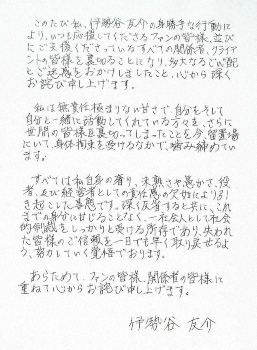 このたび私、伊勢谷友介の身勝手な行動に
より、いつも応援してくださるファンの皆様、並び
にご支援くださっているすべての関係者、クライア
ントの皆様を裏切ることになり、多大なるご心配
とご迷惑をおかけしましたこと、心から深く
お詫び申し上げます。
私は無責任極まりない甘さで、自分もそして
自分と一緒に活動してくれている方々を、さらに
世間の皆様迄裏切ってしまったことを今、留置場
にいて、身体拘束を受けるなかで、噛み締めてい
ます。
すべては私自身の驕り、未熟さや愚かさ、役
者、及び経営者としての責任感の欠如により引
き起こした事態です。深く反省すると共に、これ
までの身分に甘じることなく、一社会人として社会
的制裁をしっかりと受ける所存であり、失われ
た皆様のご信頼を一日でも早く取り戻せるよ
う、努力していく覚悟でおります。
あらためて、ファンの皆様、関係者の皆様に
重ねて心からお詫び申し上げます。
伊勢谷 友介